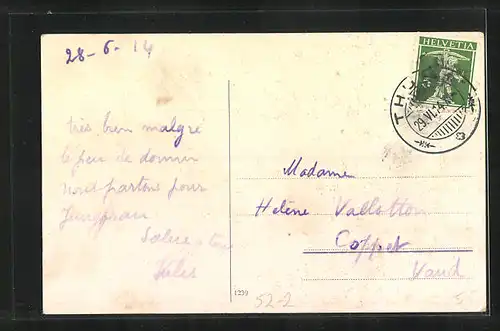 28-6-14
HELVETIA
TH
29.VI.14
très bien malgré
le peu de
nous partons pour
Jungfrau
Salue
Jules
Madame
Hélène Vallotton
Coppet
Vaud
1239
52-2